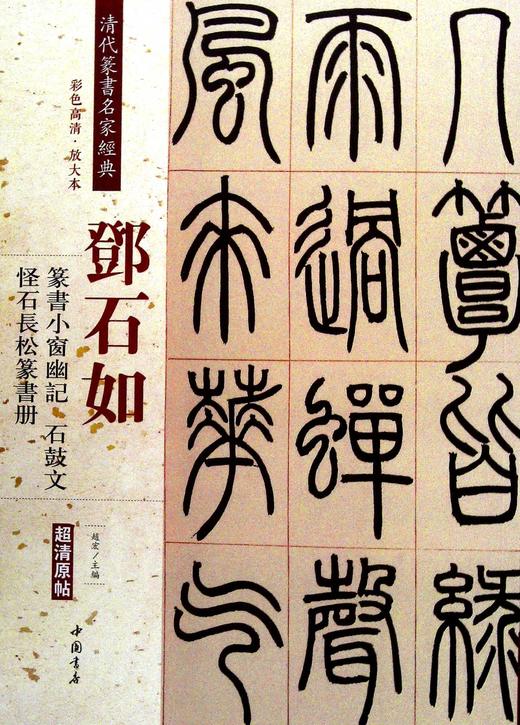 清代篆書名家經典
彩色高清·放大本
鄧石如
篆書小窗幽記 石鼓文
怪石長松篆書册
趙宏/主編
超清原帖
中国書店
几簟皆綠
雨過蟬聲
風來華气